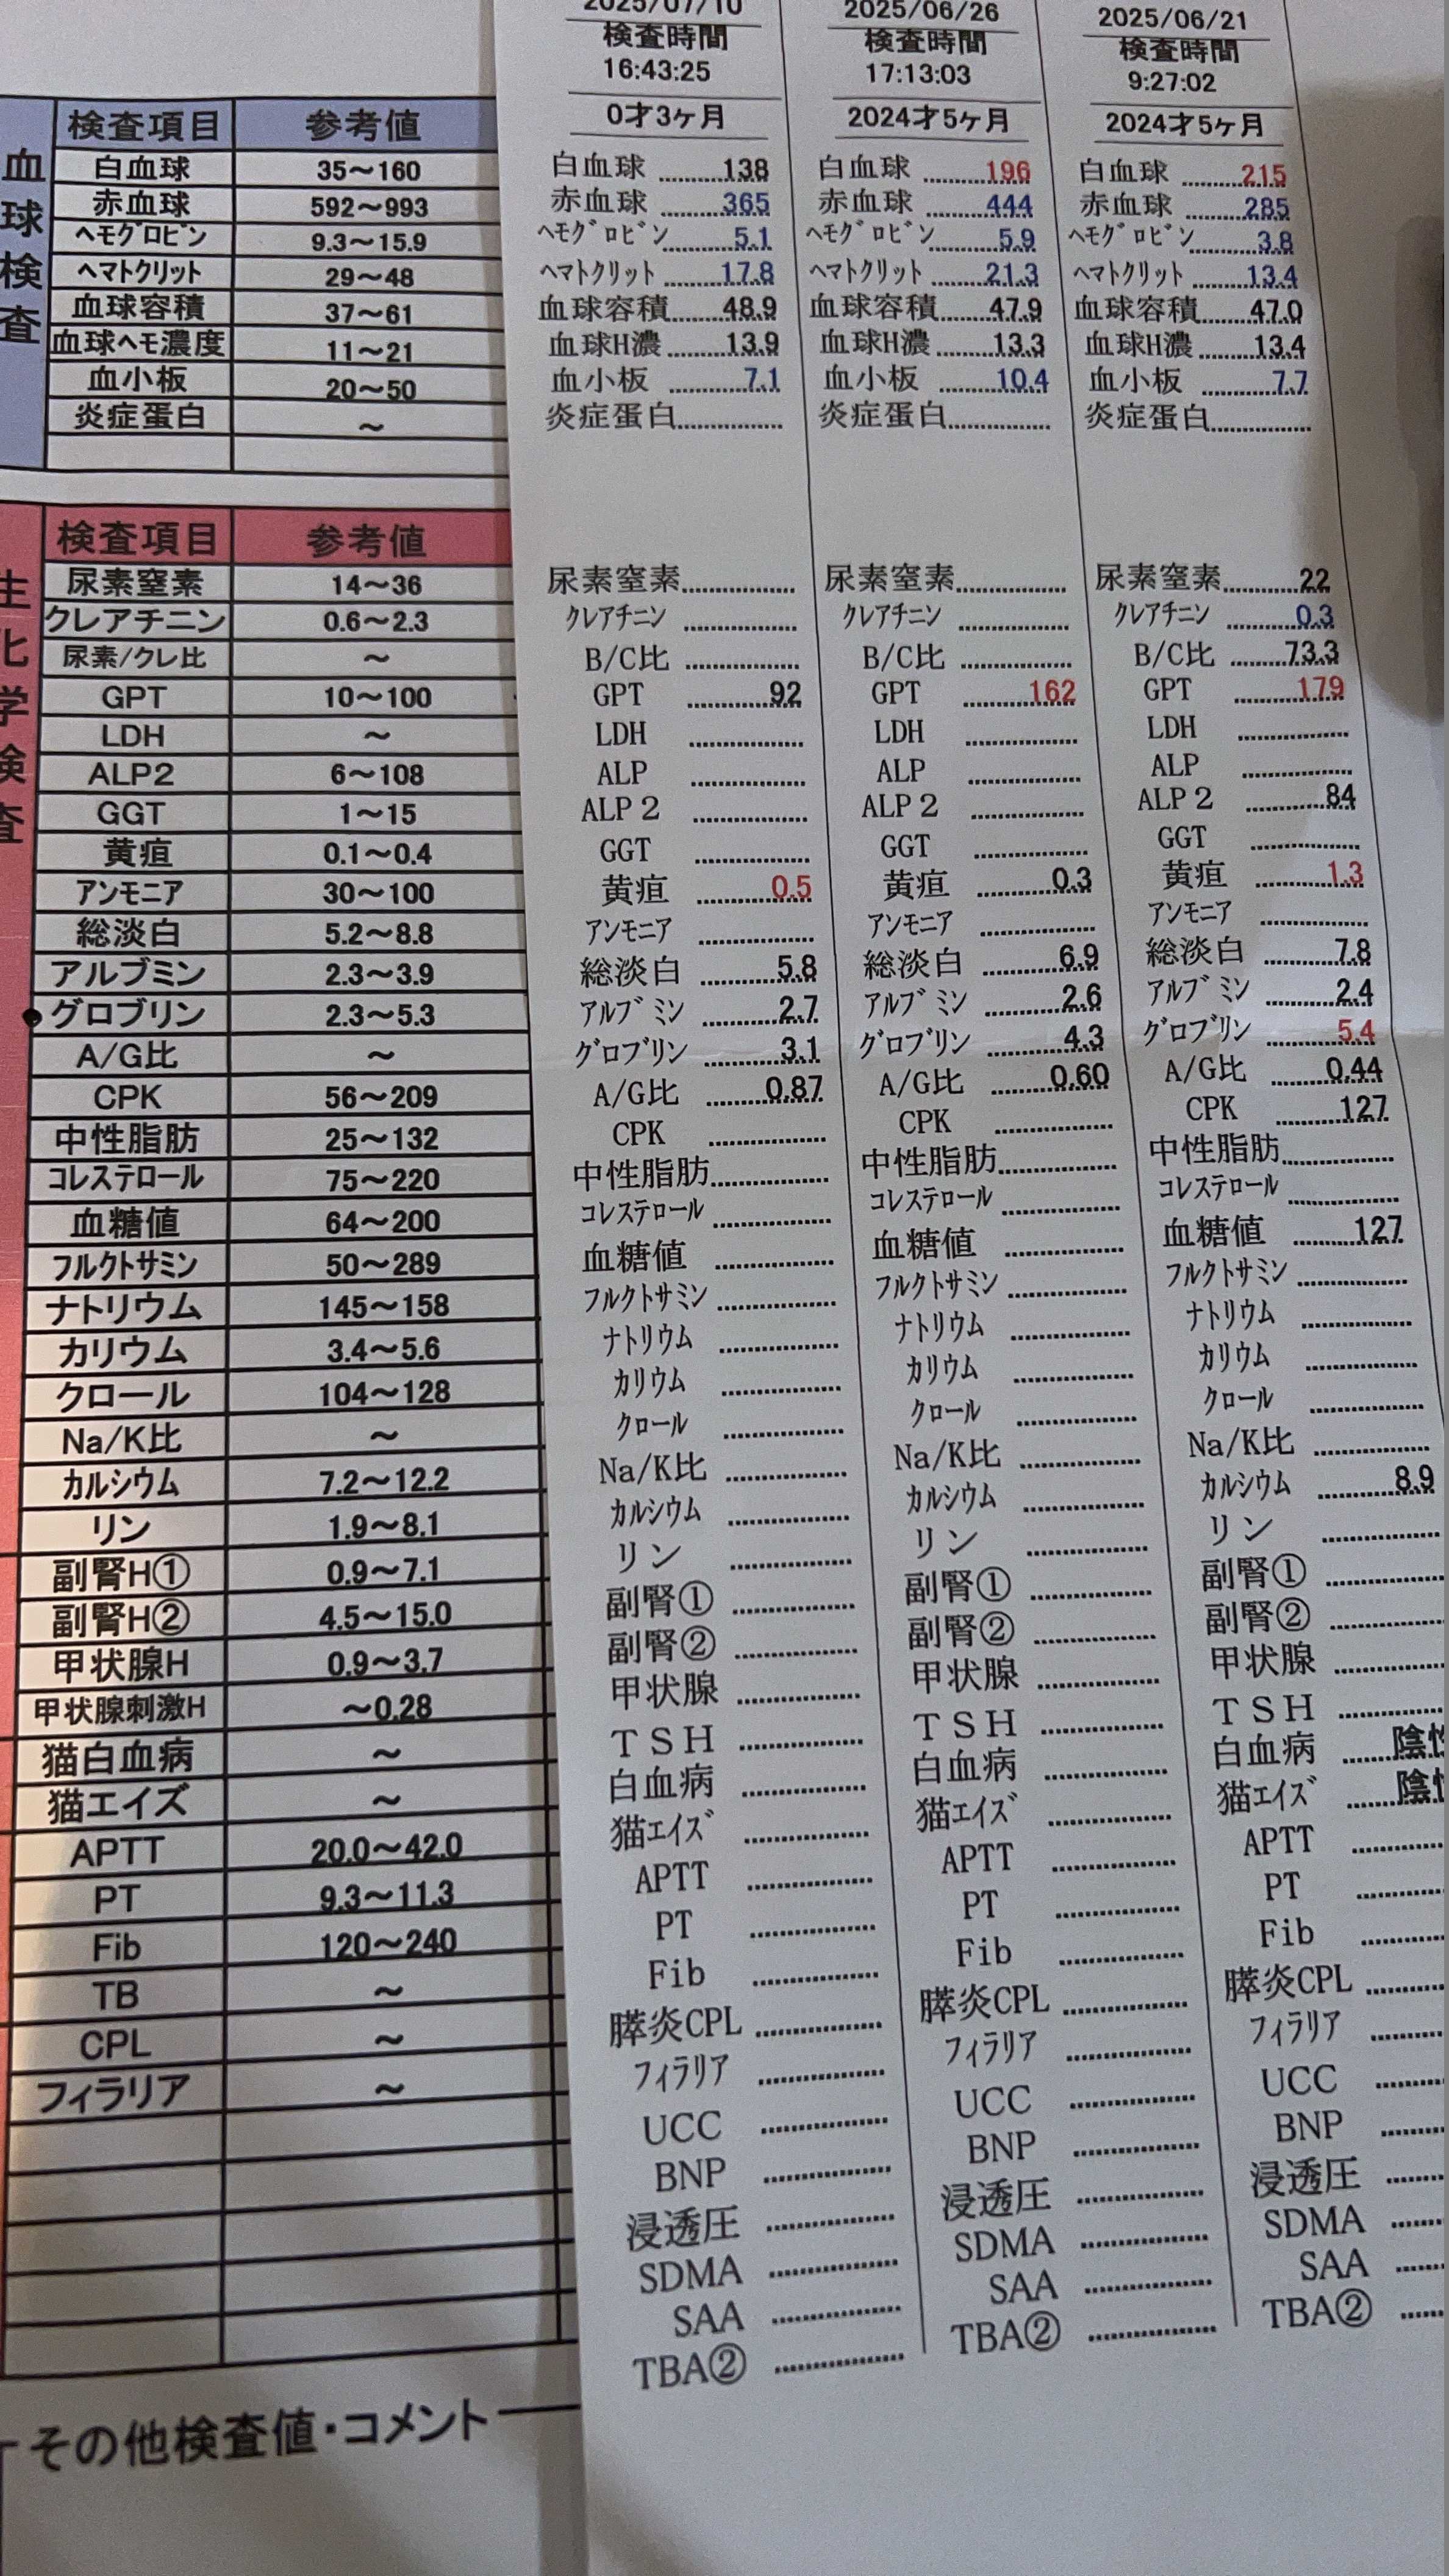 2025/07/10
検査時間
16:43:25
0才3ヶ月
2025/06/26
検査時間
17:13:03
2024才5ヶ月
2025/06/21
検査時間
9:27:02
2024才5ヶ月
血球検査
検査項目 参考値
白血球 35～160 白血球 138 白血球 196 白血球 215
赤血球 592～993 赤血球 365 赤血球 444 赤血球 285
ヘモグロビン 9.3～15.9 ヘモグロビン 5.1 ヘモグロビン 5.9 ヘモグロビン 3.8
ヘマトクリット 29～48 ヘマトクリット 17.8 ヘマトクリット 21.3 ヘマトクリット 13.4
血球容積 37～61 血球容積 48.9 血球容積 47.9 血球容積 47.0
血球ヘモ濃度 11～21 血球H濃 13.9 血球H濃 13.3 血球H濃 13.4
血小板 20～50 血小板 7.1 血小板 10.4 血小板 7.7
炎症蛋白 ～ 炎症蛋白 炎症蛋白 炎症蛋白
生化学検査
検査項目 参考値
尿素窒素 14～36 尿素窒素 尿素窒素 尿素窒素 22
クレアチニン 0.6～2.3 クレアチニン クレアチニン クレアチニン 0.3
尿素/クレ比 ～ B/C比 B/C比 B/C比 73.3
GPT 10～100 GPT 92 GPT 162 GPT 179
LDH ～ LDH LDH LDH
ALP ALP ALP
ALP2 6～108 ALP2 ALP2 ALP2 84
GGT 1～15 GGT GGT GGT
黄疸 0.1～0.4 黄疸 0.5 黄疸 0.3 黄疸 1.3
アンモニア 30～100 アンモニア アンモニア アンモニア
総淡白 5.2～8.8 総淡白 5.8 総淡白 6.9 総淡白 7.8
アルブミン 2.3～3.9 アルブミン 2.7 アルブミン 2.6 アルブミン 2.4
グロブリン 2.3～5.3 グロブリン 3.1 グロブリン 4.3 グロブリン 5.4
A/G比 ～ A/G比 0.87 A/G比 0.60 A/G比 0.44
CPK 56～209 CPK CPK CPK 127
中性脂肪 25～132 中性脂肪 中性脂肪 中性脂肪
コレステロール 75～220 コレステロール コレステロール コレステロール
血糖値 64～200 血糖値 血糖値 血糖値 127
フルクトサミン 50～289 フルクトサミン フルクトサミン フルクトサミン
ナトリウム 145～158 ナトリウム ナトリウム ナトリウム
カリウム 3.4～5.6 カリウム カリウム カリウム
クロール 104～128 クロール クロール クロール
Na/K比 ～ Na/K比 Na/K比 Na/K比
カルシウム 7.2～12.2 カルシウム カルシウム カルシウム 8.9
リン 1.9～8.1 リン リン リン
副腎H① 0.9～7.1 副腎① 副腎① 副腎①
副腎H② 4.5～15.0 副腎② 副腎② 副腎②
甲状腺H 0.9～3.7 甲状腺 甲状腺 甲状腺
甲状腺刺激H ～0.28 TSH TSH TSH
猫白血病 ～ 白血病 白血病 白血病 陰性
猫エイズ ～ 猫エイズ 猫エイズ 猫エイズ 陰性
APTT 20.0～42.0 APTT APTT APTT
PT 9.3～11.3 PT PT PT
Fib 120～240 Fib Fib Fib
TB ～
CPL ～ 膵炎CPL 膵炎CPL 膵炎CPL
フィラリア ～ フィラリア フィラリア フィラリア
UCC UCC UCC
BNP BNP BNP
浸透圧 浸透圧 浸透圧
SDMA SDMA SDMA
SAA SAA SAA
TBA② TBA② TBA②
その他検査値・コメント